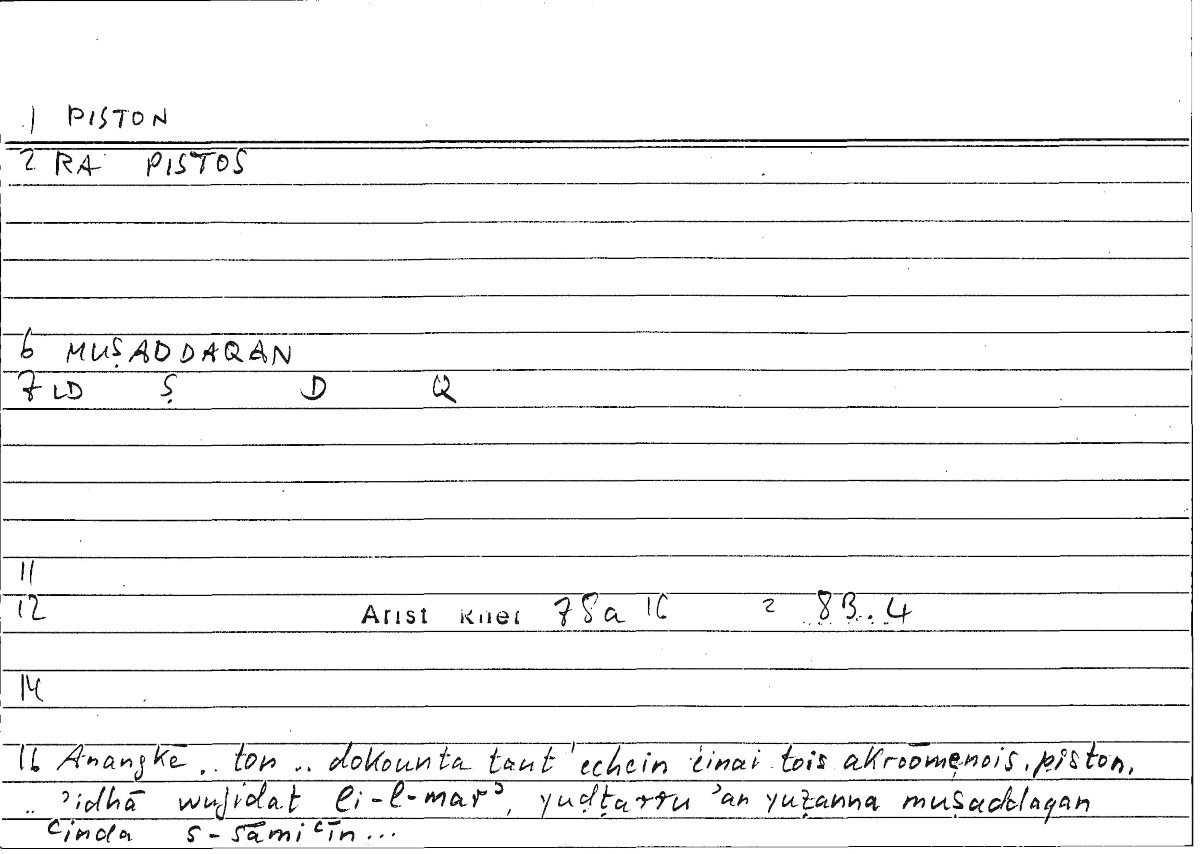 1 PISTON
2 RA PISTOS
6 MUṢADDAQAN
7 LD Ṣ D Q
11
12 Arist Rhet 78a 16 = 83..4
14
16 Anangkē .. ton .. dokounta taut' echein einai tois akroōmenois piston,
.. ʾidhā wujidat li-l-marʾ, yuḍṭarru ʾan yuẓanna muṣaddaqan
ʿinda s-sāmiʿīn...